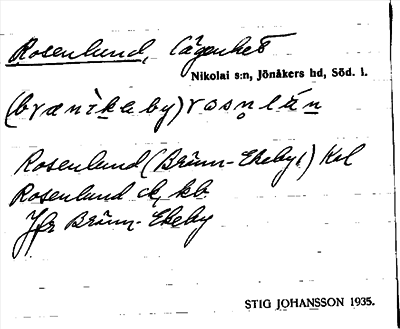 Rosenlund, Lägenhet
Nikolai s:n, Jönåkers hd, Söd. l.
(brænìkeby) rosn̥lán
Rosenlund (Bränn-Ekeby,) Kol
Rosenlund ck, kb.
Jfr Bränn-Ekeby
STIG JOHANSSON 1935.